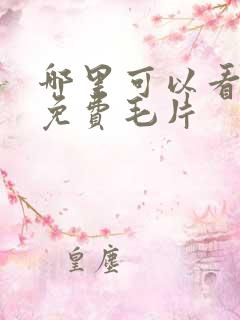 哪里可以看
免費毛片
皇塵